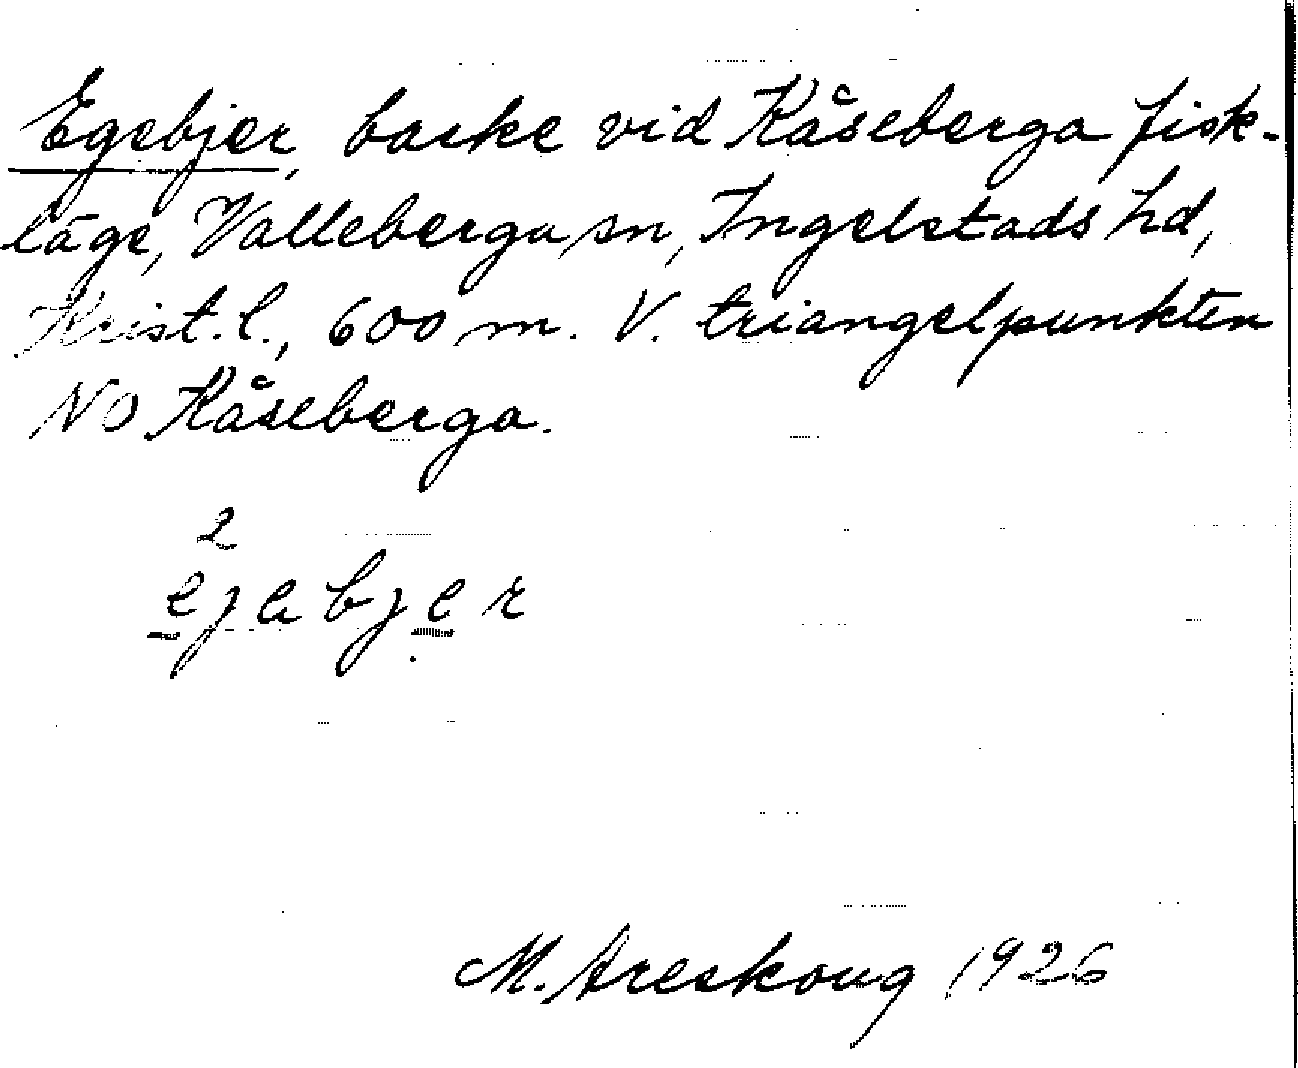 Egebjer, backe vid Kåseberga fisk-
läge, Valleberga sn, Ingelstads hd,
Krist. l., 600 m. V. triangelpunkten
NO Kåseberga.
2
ejabjer
M. Areskoug 1926